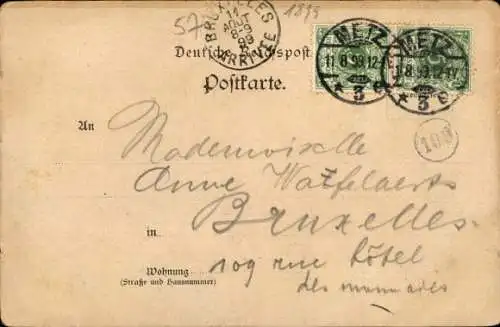 57
1899
BRUXELLES
11
AOUT
8-9
99
ARRIVÉE
METZ
11.8.99.12-1V.
* 3 e
METZ
8.99.12-1V.
* 3 e
Deutsche Reichspost
Postkarte.
108
An
Mademoiselle
Anne Watzelaerts
Bruxelles
in
109 rue Hôtel
Wohnung
(Straße und Hausnummer)
des monnaies